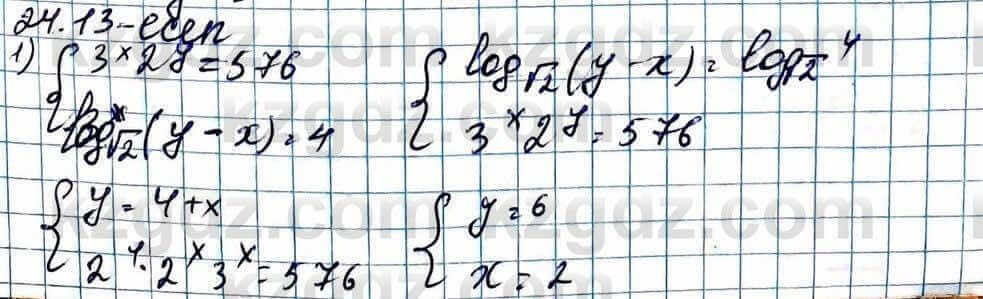 24.13-есеп
1) { 3^x 2^y = 576
log_√2 (y - x) = 4
{ log_√2 (y - x) = log_√2 4
3^x 2^y = 576
{ y = 4 + x
2^4 · 2^x 3^x = 576
{ y = 6
x = 2